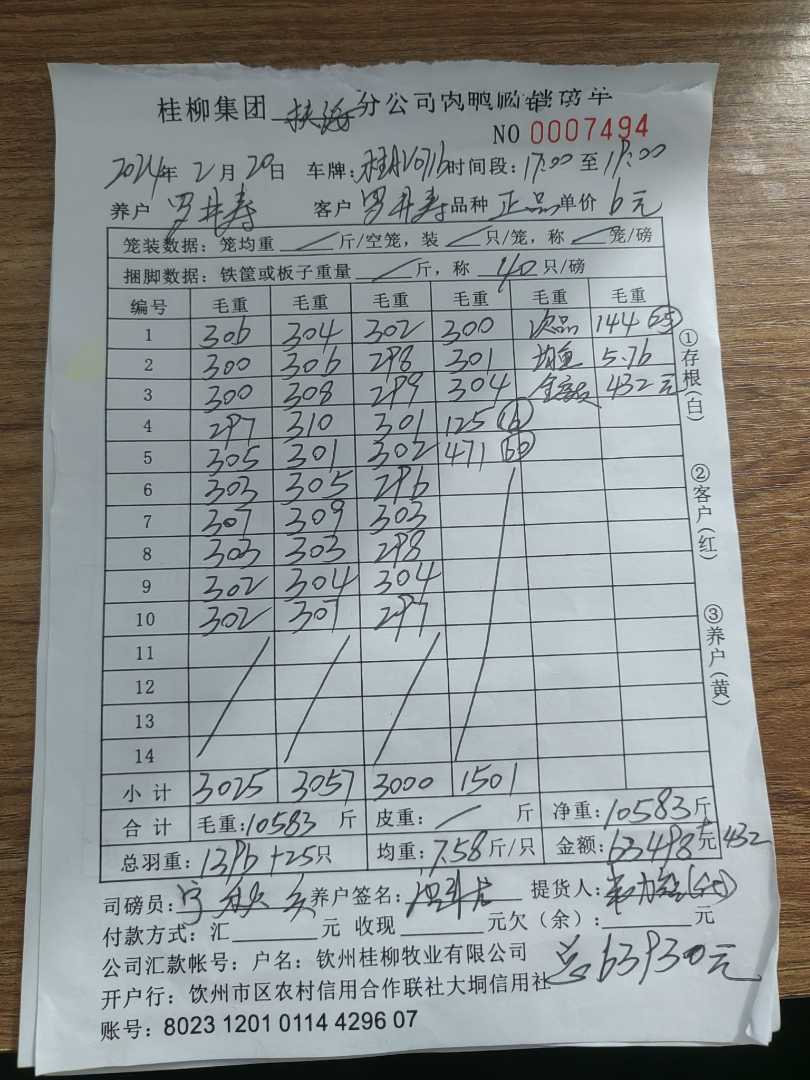 桂柳集团 扶海 分公司肉鸭购销磅单
NO 0007494
2024年 2月 20日 车牌: 时间段: 17:00 至 19:00
养户 罗井寿 客户 罗井寿 品种 正品 单价 6元
笼装数据: 笼均重 / 斤/空笼, 装 / 只/笼, 称 / 笼/磅
捆脚数据: 铁筐或板子重量 / 斤, 称 40 只/磅
编号 毛重 毛重 毛重 毛重 毛重 毛重
1 306 304 302 300 次品 144 25
2 300 306 298 301 均重 5.76
3 300 308 299 304 金额 432元
4 297 310 301 125 16
5 305 301 302 471 60
6 303 305 296
7 307 309 303
8 303 303 298
9 302 304 304
10 302 307 297
11
12
13
14
小计 3025 3057 3000 1501
合计 毛重: 10583 斤 皮重: / 斤 净重: 10583斤
总羽重: 1396+25只 均重: 7.58斤/只 金额: 63498元+432
司磅员: 养户签名: 提货人:
付款方式: 汇 元 收现 元欠(余): 元
公司汇款帐号: 户名: 钦州桂柳牧业有限公司
总63930元
开户行: 饮州市区农村信用合作联社大垌信用社
账号: 8023 1201 0114 4296 07
①存根(白)
②客户(红)
③养户(黄)